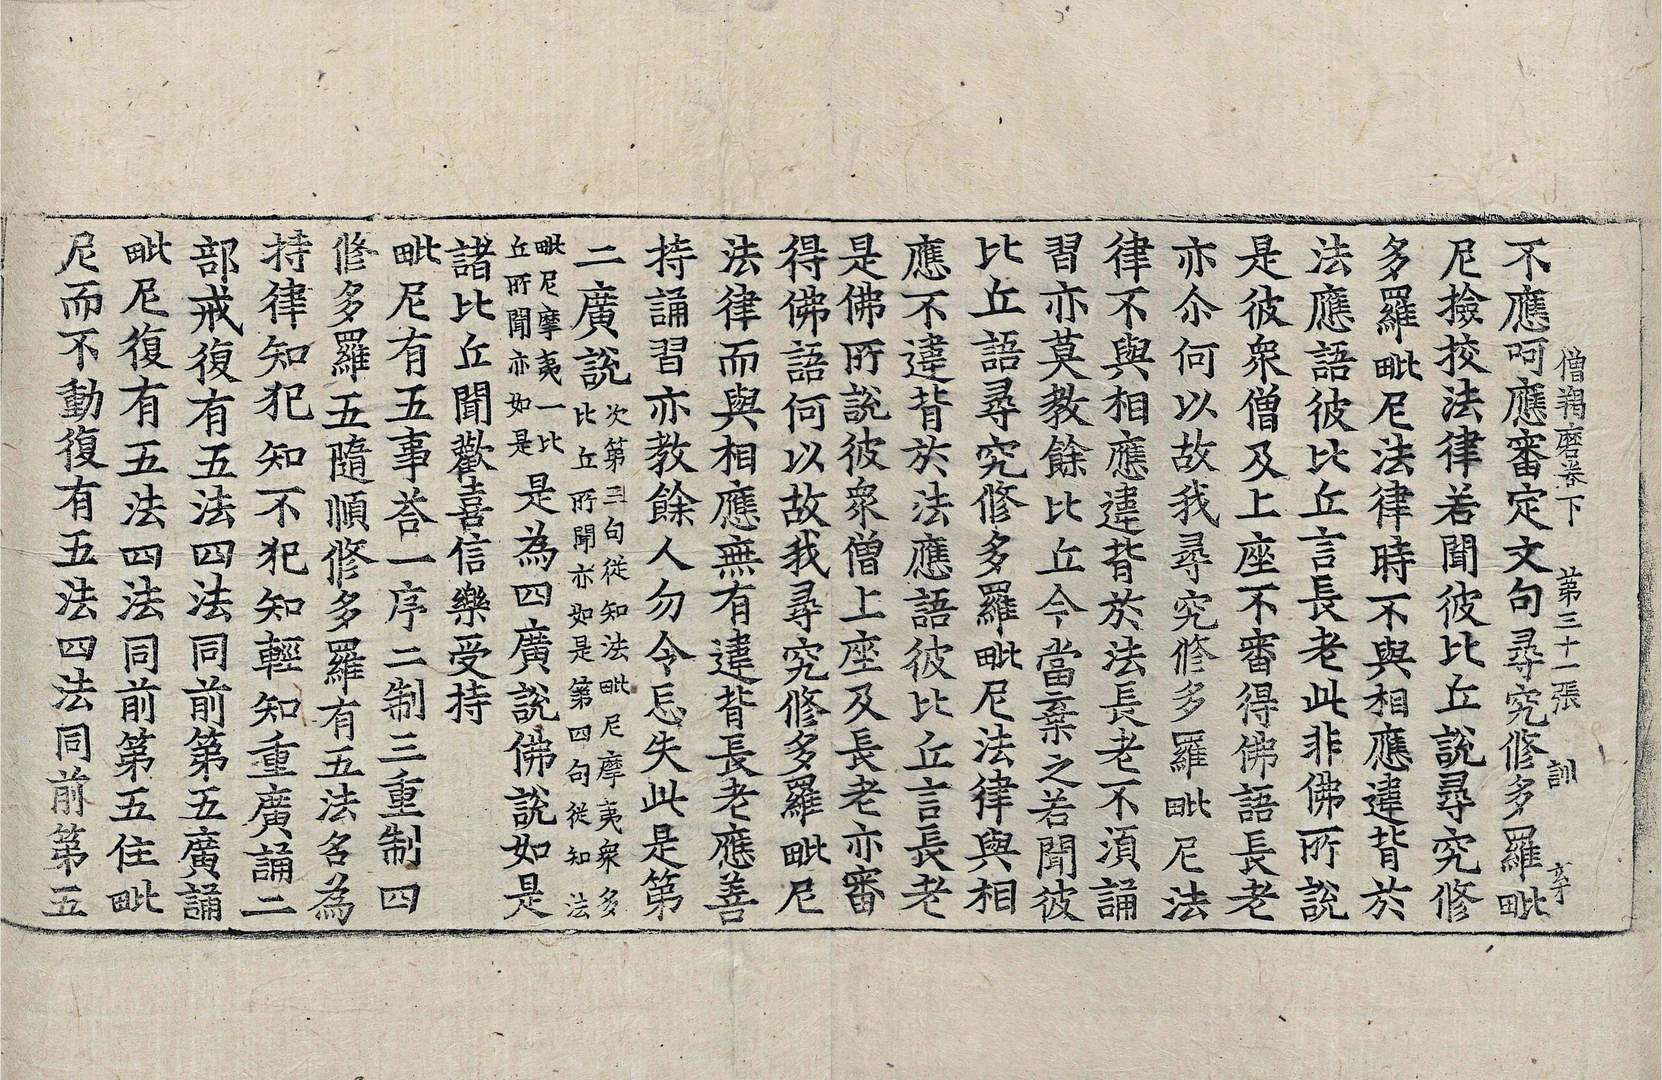 僧羯磨卷下　第三十一張　訓　玄
不應呵應審定文句尋究修多羅毗
尼撿挍法律若聞彼比丘說尋究修
多羅毗尼法律時不與相應違背於
法應語彼比丘言長老此非佛所說
是彼衆僧及上座不審得佛語長老
亦尒何以故我尋究修多羅毗尼法
律不與相應違背於法長老不湏誦
習亦莫教餘比丘今當棄之若聞彼
比丘語尋究修多羅毗尼法律與相
應不違背於法應語彼比丘言長老
是佛所說彼衆僧上座及長老亦審
得佛語何以故我尋究修多羅毗尼
法律而與相應無有違背長老應善
持誦習亦教餘人勿令忘失此是第
二廣說次第三句從知法毗尼摩夷衆多
比丘所聞亦如是第四句從知法
毗尼摩夷一比
丘所聞亦如是是為四廣說佛說如是
諸比丘聞歡喜信樂受持
毗尼有五事荅一序二制三重制四
修多羅五隨順修多羅有五法名為
持律知犯知不犯知輕知重廣誦二
部戒復有五法四法同前第五廣誦
毗尼復有五法四法同前第五住毗
尼而不動復有五法四法同前第五